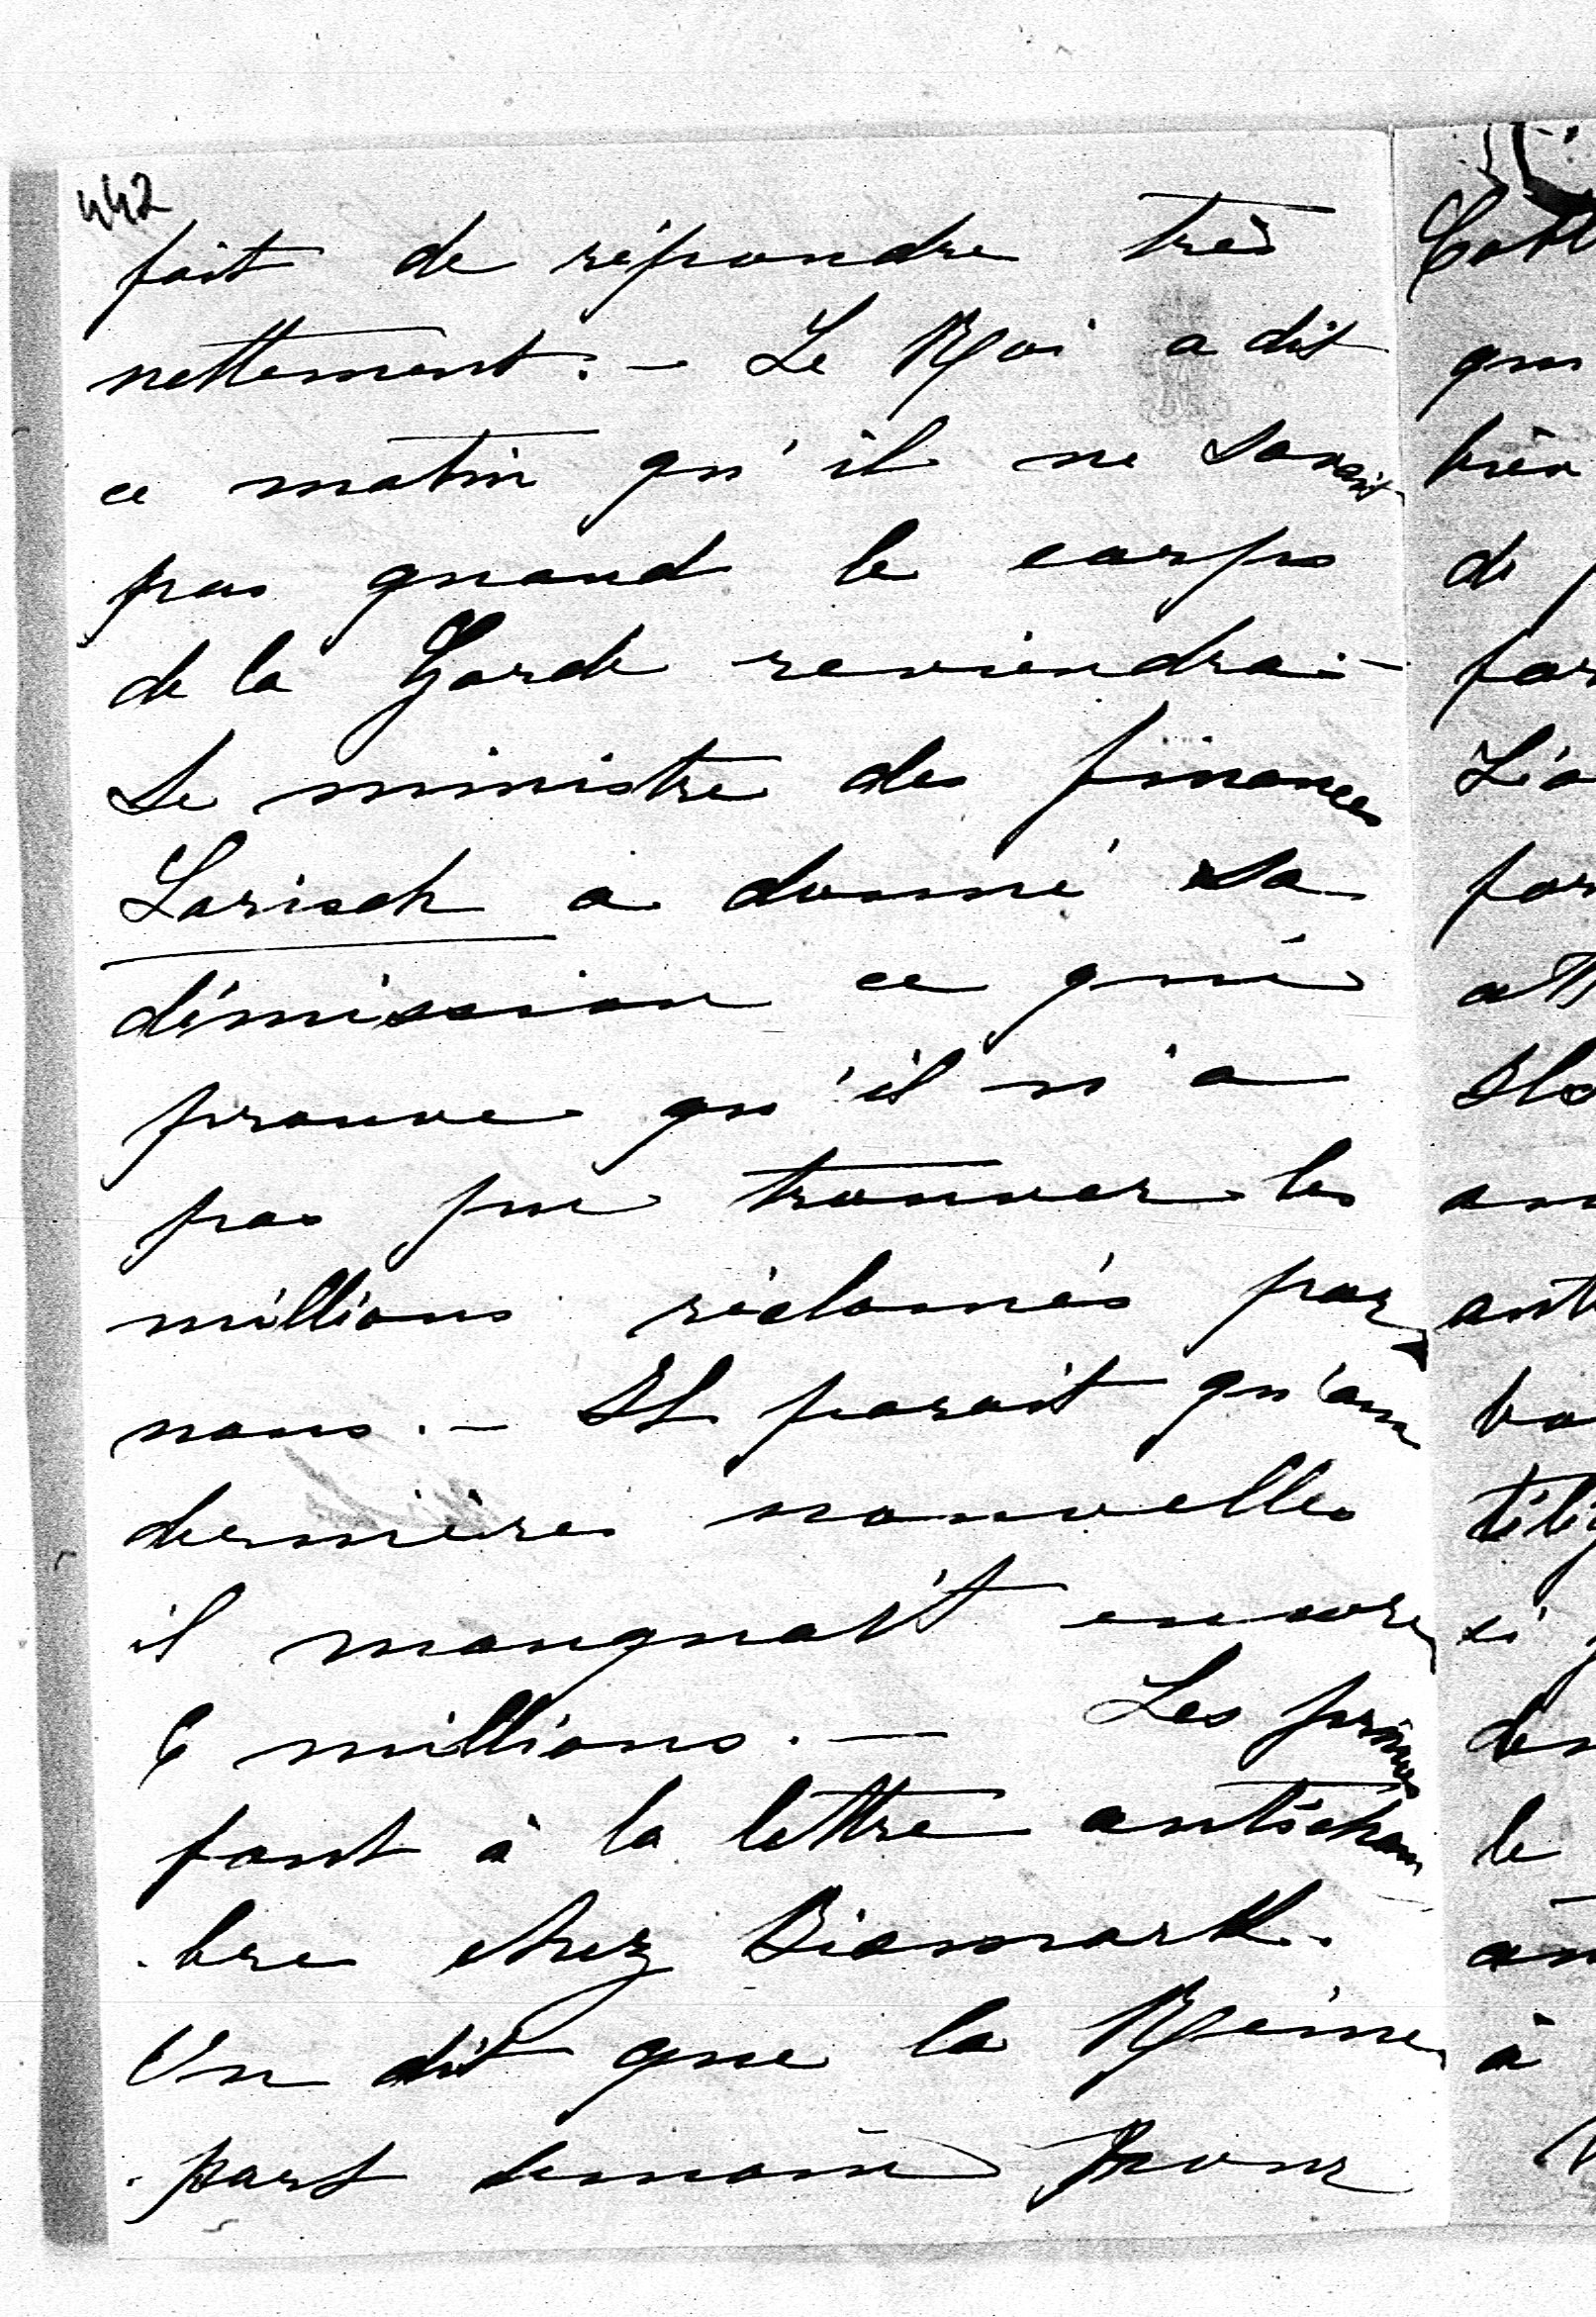 442
fait de répondre très
nettement: - Le Roi a dit
ce matin qu'il ne savait
pas quand le corps
de la Garde reviendrai -
Le ministre des finances
Larisch a donné sa
démission ce qui
prouve qu'il n'a
pas pu trouver les
millions réclamés par
nous. - Il parait qu'aux
dernières nouvelles
il manquait encore
6 millions. - Les princes
font à la lettre anticham
bre chez Bismark.
On dit que la Reine
part demain pour